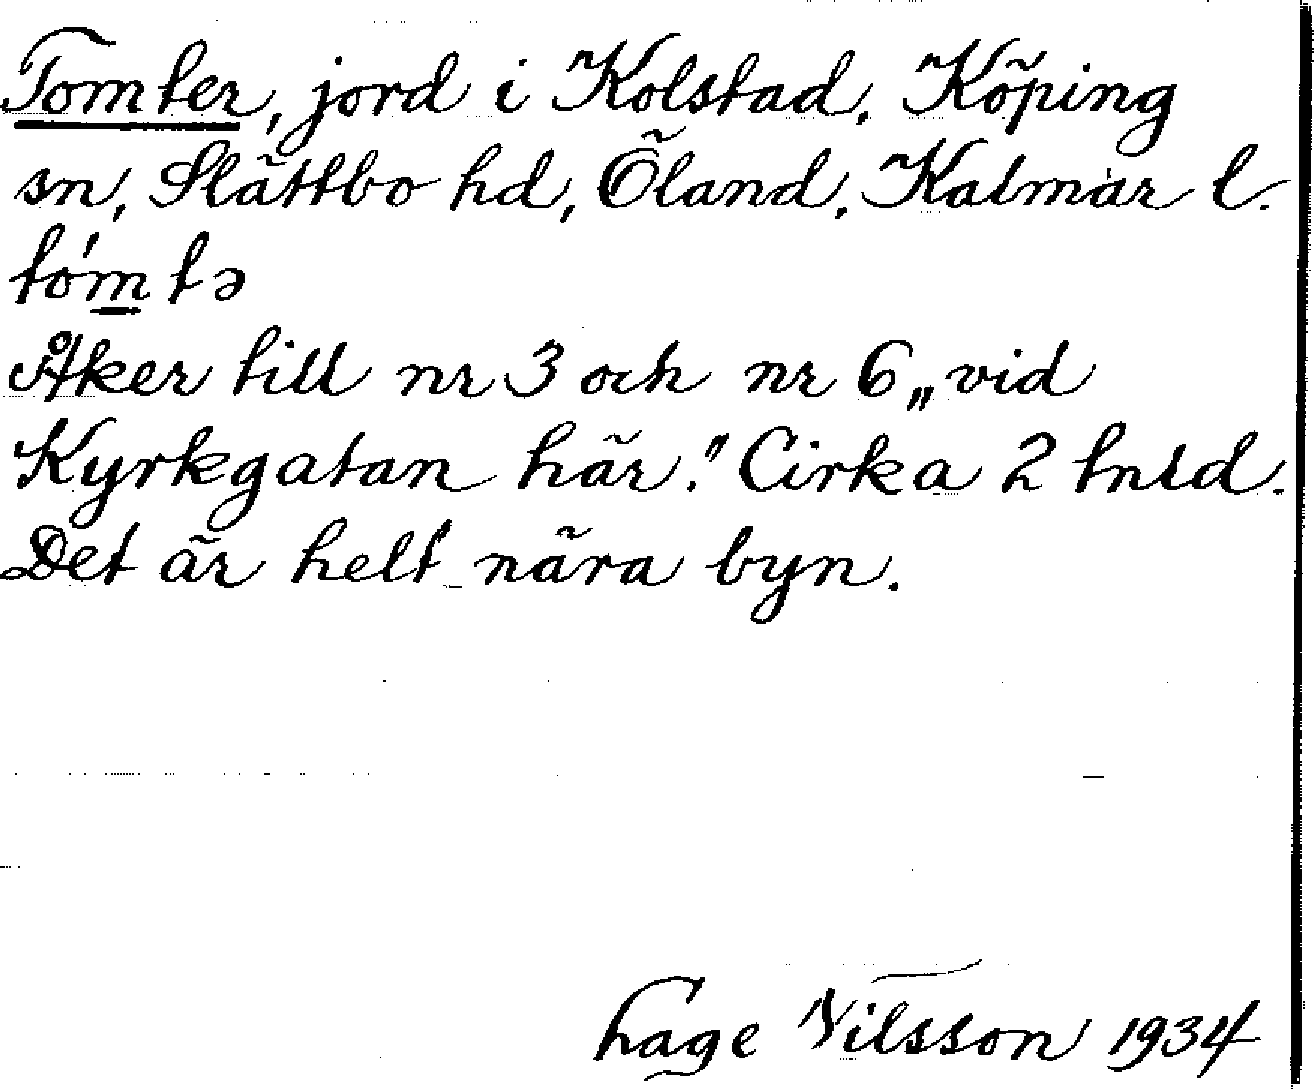 Tomter, jord i Kolstad, Köping
sn, Slättbo hd, Öland, Kalmar l.
tóm̲tə
Åker till nr 3 och nr 6 „vid
Kyrkgatan här." Cirka 2 tnld.
Det är helt nära byn.
Hage Nilsson 1934